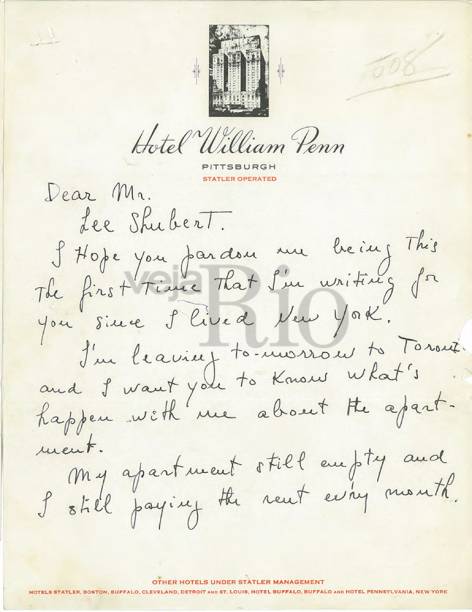 5008
Hotel William Penn
PITTSBURGH
STATLER OPERATED
Dear Mr.
Lee Shubert.
I Hope you pardon me being This
The first Time That I'm writing for
you since I lived New York.
I'm leaving to-morrow to Toront
and I want you to know what's
happen with me about the apart-
ment.
My apartment still empty and
I still paying the rent ev'ry month.
veja
Rio
OTHER HOTELS UNDER STATLER MANAGEMENT
HOTELS STATLER, BOSTON, BUFFALO, CLEVELAND, DETROIT AND ST. LOUIS, HOTEL BUFFALO, BUFFALO AND HOTEL PENNSYLVANIA, NEW YORK